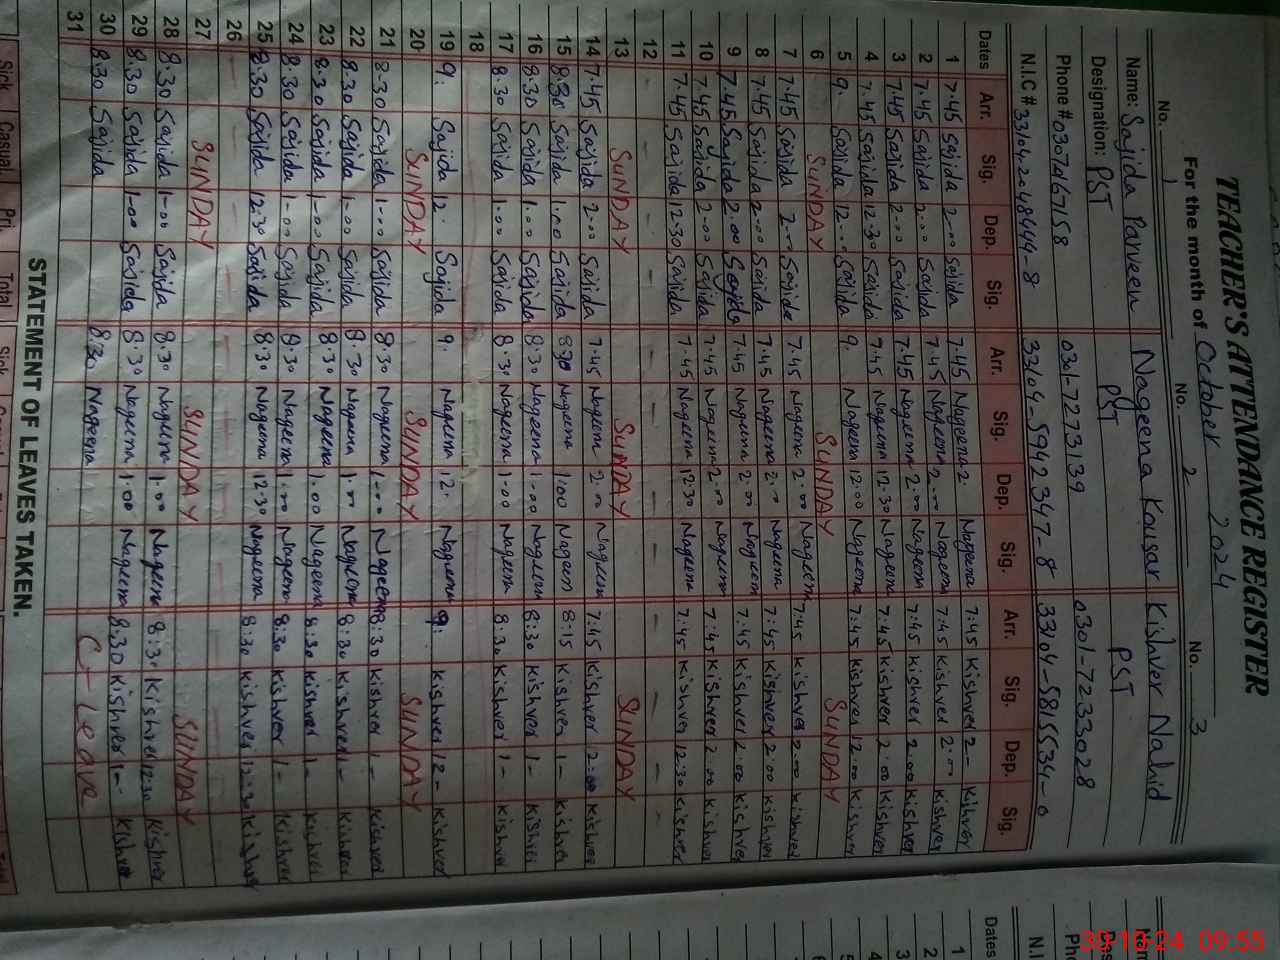 TEACHER'S ATTENDANCE REGISTER
For the month of October 2024
No. 1 No. 2 No. 3
Name: Sajida Parveen Nageena Kousar Kishver Nahid
Designation: PST PST PST
Phone # 0301-7273139 0301-7233028
N.I.C # 33104-5942347-8 33104-5815534-0
Dates Arr. Sig. Dep. Sig. Arr. Sig. Dep. Sig. Arr. Sig. Dep. Sig.
1 7.45 Sajida 2-00 Sajida 7.45 Nageena 2 Nageena 7:45 Kishver 2- Kishver
2 7.45 Sajida 2-00 Sajida 7.45 Nageena 2-00 Nageena 7:45 Kishver 2:00 Kishver
3 7.45 Sajida 2-00 Sajida 7.45 Nageena 2.00 Nageena 7:45 Kishver 2.00 Kishver
4 7.45 Sajida 12.30 Sajida 7.45 Nageena 12.30 Nageena 7:45 Kishver 2.00 Kishver
5 9. Sajida 12-00 Sajida 9. Nageena 12.00 Nageena 7:45 Kishver 12.00 Kishver
6 SUNDAY SUNDAY SUNDAY
7 7.45 Sajida 2-00 Sajida 7.45 Nageena 2.00 Nageena 7:45 Kishver 2.00 Kishver
8 7.45 Sajida 2-00 Sajida 7.45 Nageena 2.00 Nageena 7:45 Kishver 2.00 Kishver
9 7.45 Sajida 2.00 Sajida 7.45 Nageena 2.00 Nageena 7:45 Kishver 2.00 Kishver
10 7.45 Sajida 2-00 Sajida 7.45 Nageena 2.00 Nageena 7:45 Kishver 2.00 Kishver
11 7.45 Sajida 12.30 Sajida 7.45 Nageena 12.30 Nageena 7:45 Kishver 12.30 Kishver
12 - - - - - - - - - -
13 SUNDAY SUNDAY SUNDAY
14 7.45 Sajida 2-00 Sajida 7.45 Nageena 2.00 Nageena 7:45 Kishver 2:00 Kishver
15 8.30 Sajida 1.00 Sajida 830 Nageena 1.00 Nageen 8:15 Kishver 1- Kishver
16 8.30 Sajida 1.00 Sajida 8.30 Nageena 1.00 Nageena 8:30 Kishver 1- Kishver
17 8.30 Sajida 1.00 Sajida 8.30 Nageena 1.00 Nageena 8.30 Kishver 1- Kishver
18
19 9: Sajida 12. Sajida 9. Nageena 12. Nageena 9: Kishver 12- Kishver
20 SUNDAY SUNDAY SUNDAY
21 8.30 Sajida 1-00 Sajida 8.30 Nageena 1-00 Nageena 8:30 Kishver 1- Kishver
22 8.30 Sajida 1-00 Sajida 8.30 Nageena 1.00 Nageena 8:30 Kishver 1- Kishver
23 8.30 Sajida 1-00 Sajida 8.30 Nageena 1.00 Nageena 8:30 Kishver 1- Kishver
24 8.30 Sajida 1-00 Sajida 8.30 Nageena 1.00 Nageena 8:30 Kishver 1- Kishver
25 8.30 Sajida 12.30 Sajida 8.30 Nageena 12.30 Nageena 8:30 Kishver 12.30 Kishver
26
27 SUNDAY SUNDAY SUNDAY
28 8.30 Sajida 1-00 Sajida 8.30 Nageena 1.00 Nageena 8:30 Kishver 12:30 Kishver
29 8.30 Sajida 1-00 Sajida 8.30 Nageena 1.00 Nageena 8.30 Kishver 1-- Kishver
30 8.30 Sajida 8.30 Nageena Leave
31
STATEMENT OF LEAVES TAKEN.
Sick Casual Pri. Total Sick
Dates
1
2
3
4
30-10-24 09:55